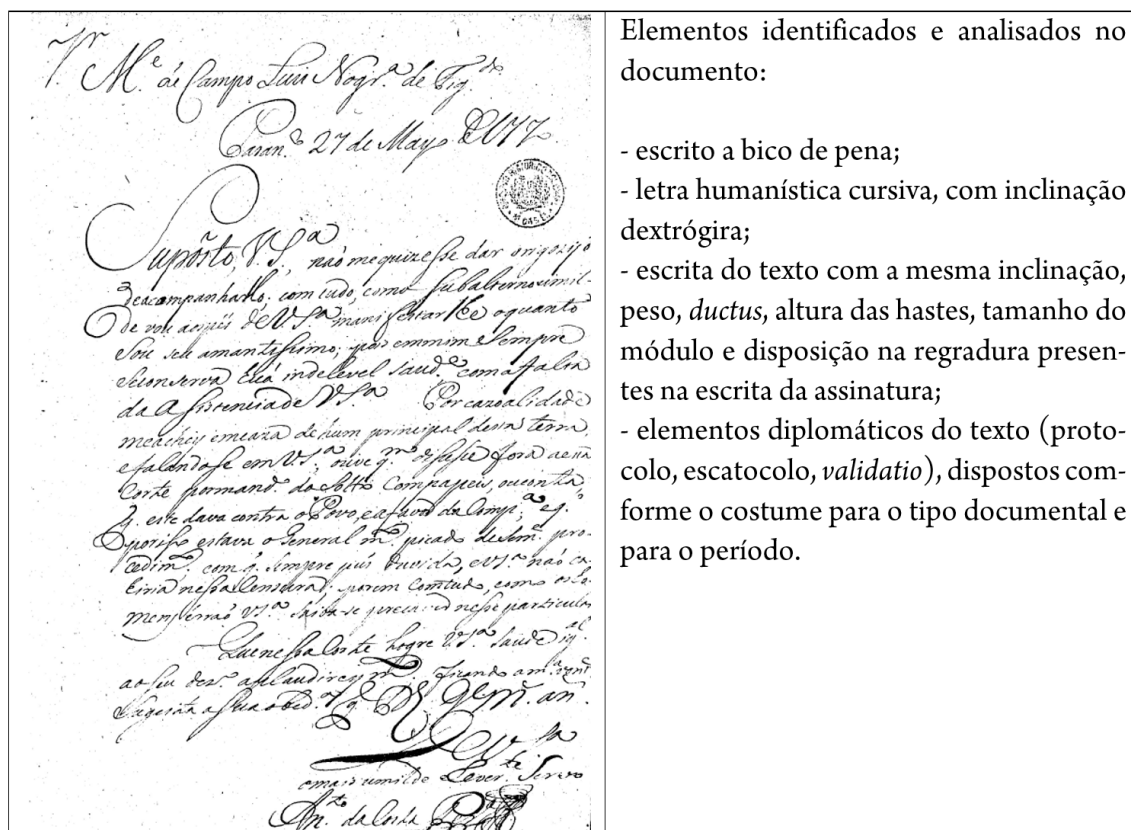 Sr
M.e de Campo Luis Nogr.a de Fig.do
Paran.o 27 de Mayo
Supósto, V.S.a não mequizesse dar o
deacompanhallo; com tudo, como subalterno umil-
de vou aos pés de V.S.a manifestarlhe oquanto
sou seu amantissimo; pois emmim sempre
seconserva indelevel saud.e com a falta
da Assistencia de V.S.a Por cazoalidade
meachey emcaza de hum principal desta terra,
efalandose em V.S.a ouve q.m disesse fora
Corte por mand.o do
q. este dava contra o Povo, e afavor da Comp.a, e q.
porisso estava o General m.to picado de Sem.e pro-
cedim.to com q. sempre pús duvida, e V.S.a não ca-
hiria nessa Censura; porem Comtudo, como os ho-
mens errão V.S.a saiba-se nesse particular
Que nessa Corte logre V.S.a saude ig.al
ao seu dez.o
a sua obd.a q. D.s g.e m. an.
De V.S.a
omais umilde Rever.te Servo
An.to da Costa
Elementos identificados e analisados no
documento:
- escrito a bico de pena;
- letra humanística cursiva, com inclinação
dextrógira;
- escrita do texto com a mesma inclinação,
peso, ductus, altura das hastes, tamanho do
módulo e disposição na regradura presen-
tes na escrita da assinatura;
- elementos diplomáticos do texto (proto-
colo, escatocolo, validatio), dispostos com-
forme o costume para o tipo documental e
para o período.